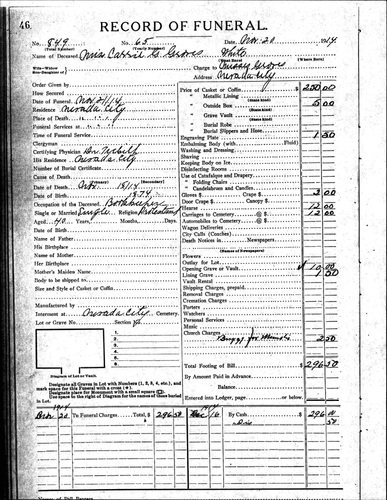 46.
RECORD OF FUNERAL.
No. 849 No. 65 Date Nov. 20 1914
(Total Number) (Yearly Number)
Name of Deceased Miss Carrie G. Groves White
Wife-Widow
Son-Daughter of
Charge to Groves
Address Nevada City
Order Given by
How Secured
Date of Funeral Nov 21/14
Residence Nevada City
Place of Death " "
Funeral Services at " "
Time of Funeral Service
Clergyman
Certifying Physician
His Residence Nevada City
Number of Burial Certificate
Cause of Death
(Primary) (Secondary)
Date of Death Nov. 18/14
Date of Birth 1874
Occupation of the Deceased Bookkeeper
Single or Married Single Religion Protestant
Aged 40 Years Months Days
Date of Birth
Name of Father
His Birthplace
Name of Mother
Her Birthplace
Mother's Maiden Name
Body to be shipped to
Size and Style of Casket or Coffin
Manufactured by
Interment at Nevada City Cemetery.
Lot or Grave No. Section No.
1
2
3
4
5
6
Diagram of Lot or Vault.
Designate all Graves in Lot with Numbers (1, 2, 3, 4, etc.), and
mark space for this Funeral with a cross (+).
Designate place for Monument with a small square (□).
Use space to the right of Diagram for the names of those buried
in Lot.
Price of Casket or Coffin $250 00
" Metallic Lining
" Outside Box 5 00
" Grave Vault
" Burial Robe
Burial Slippers and Hose
Engraving Plate 1 50
Embalming Body (with Fluid)
Washing and Dressing
Shaving
Keeping Body on Ice
Disinfecting Rooms
Use of Catafalque and Drapery
" Folding Chairs
" Candelabrum and Candles
Gloves $ 3 00
Door Crape $ Canopy $
Hearse 12 00
Carriages to Cemetery @ $ 12 00
Automobiles to Cemetery @ $
Wagon Deliveries
City Calls (Coaches)
Death Notices in Newspapers
Flowers
Outlay for Lot
Opening Grave or Vault 10 00
Lining Grave 1 50
Vault Rental
Shipping Charges, prepaid
Removal Charges
Cremation Charges
Porters
Watchers
Personal Services
Music
Church Charges
Buggy for Minister 2 50
Total Footing of Bill $296 50
By Amount Paid in Advance
Balance
Entered into Ledger, page or below.
1914
Nov 20 To Funeral Charges Total, $ 296 50 Dec 16 By Cash 296 00
Dis 50